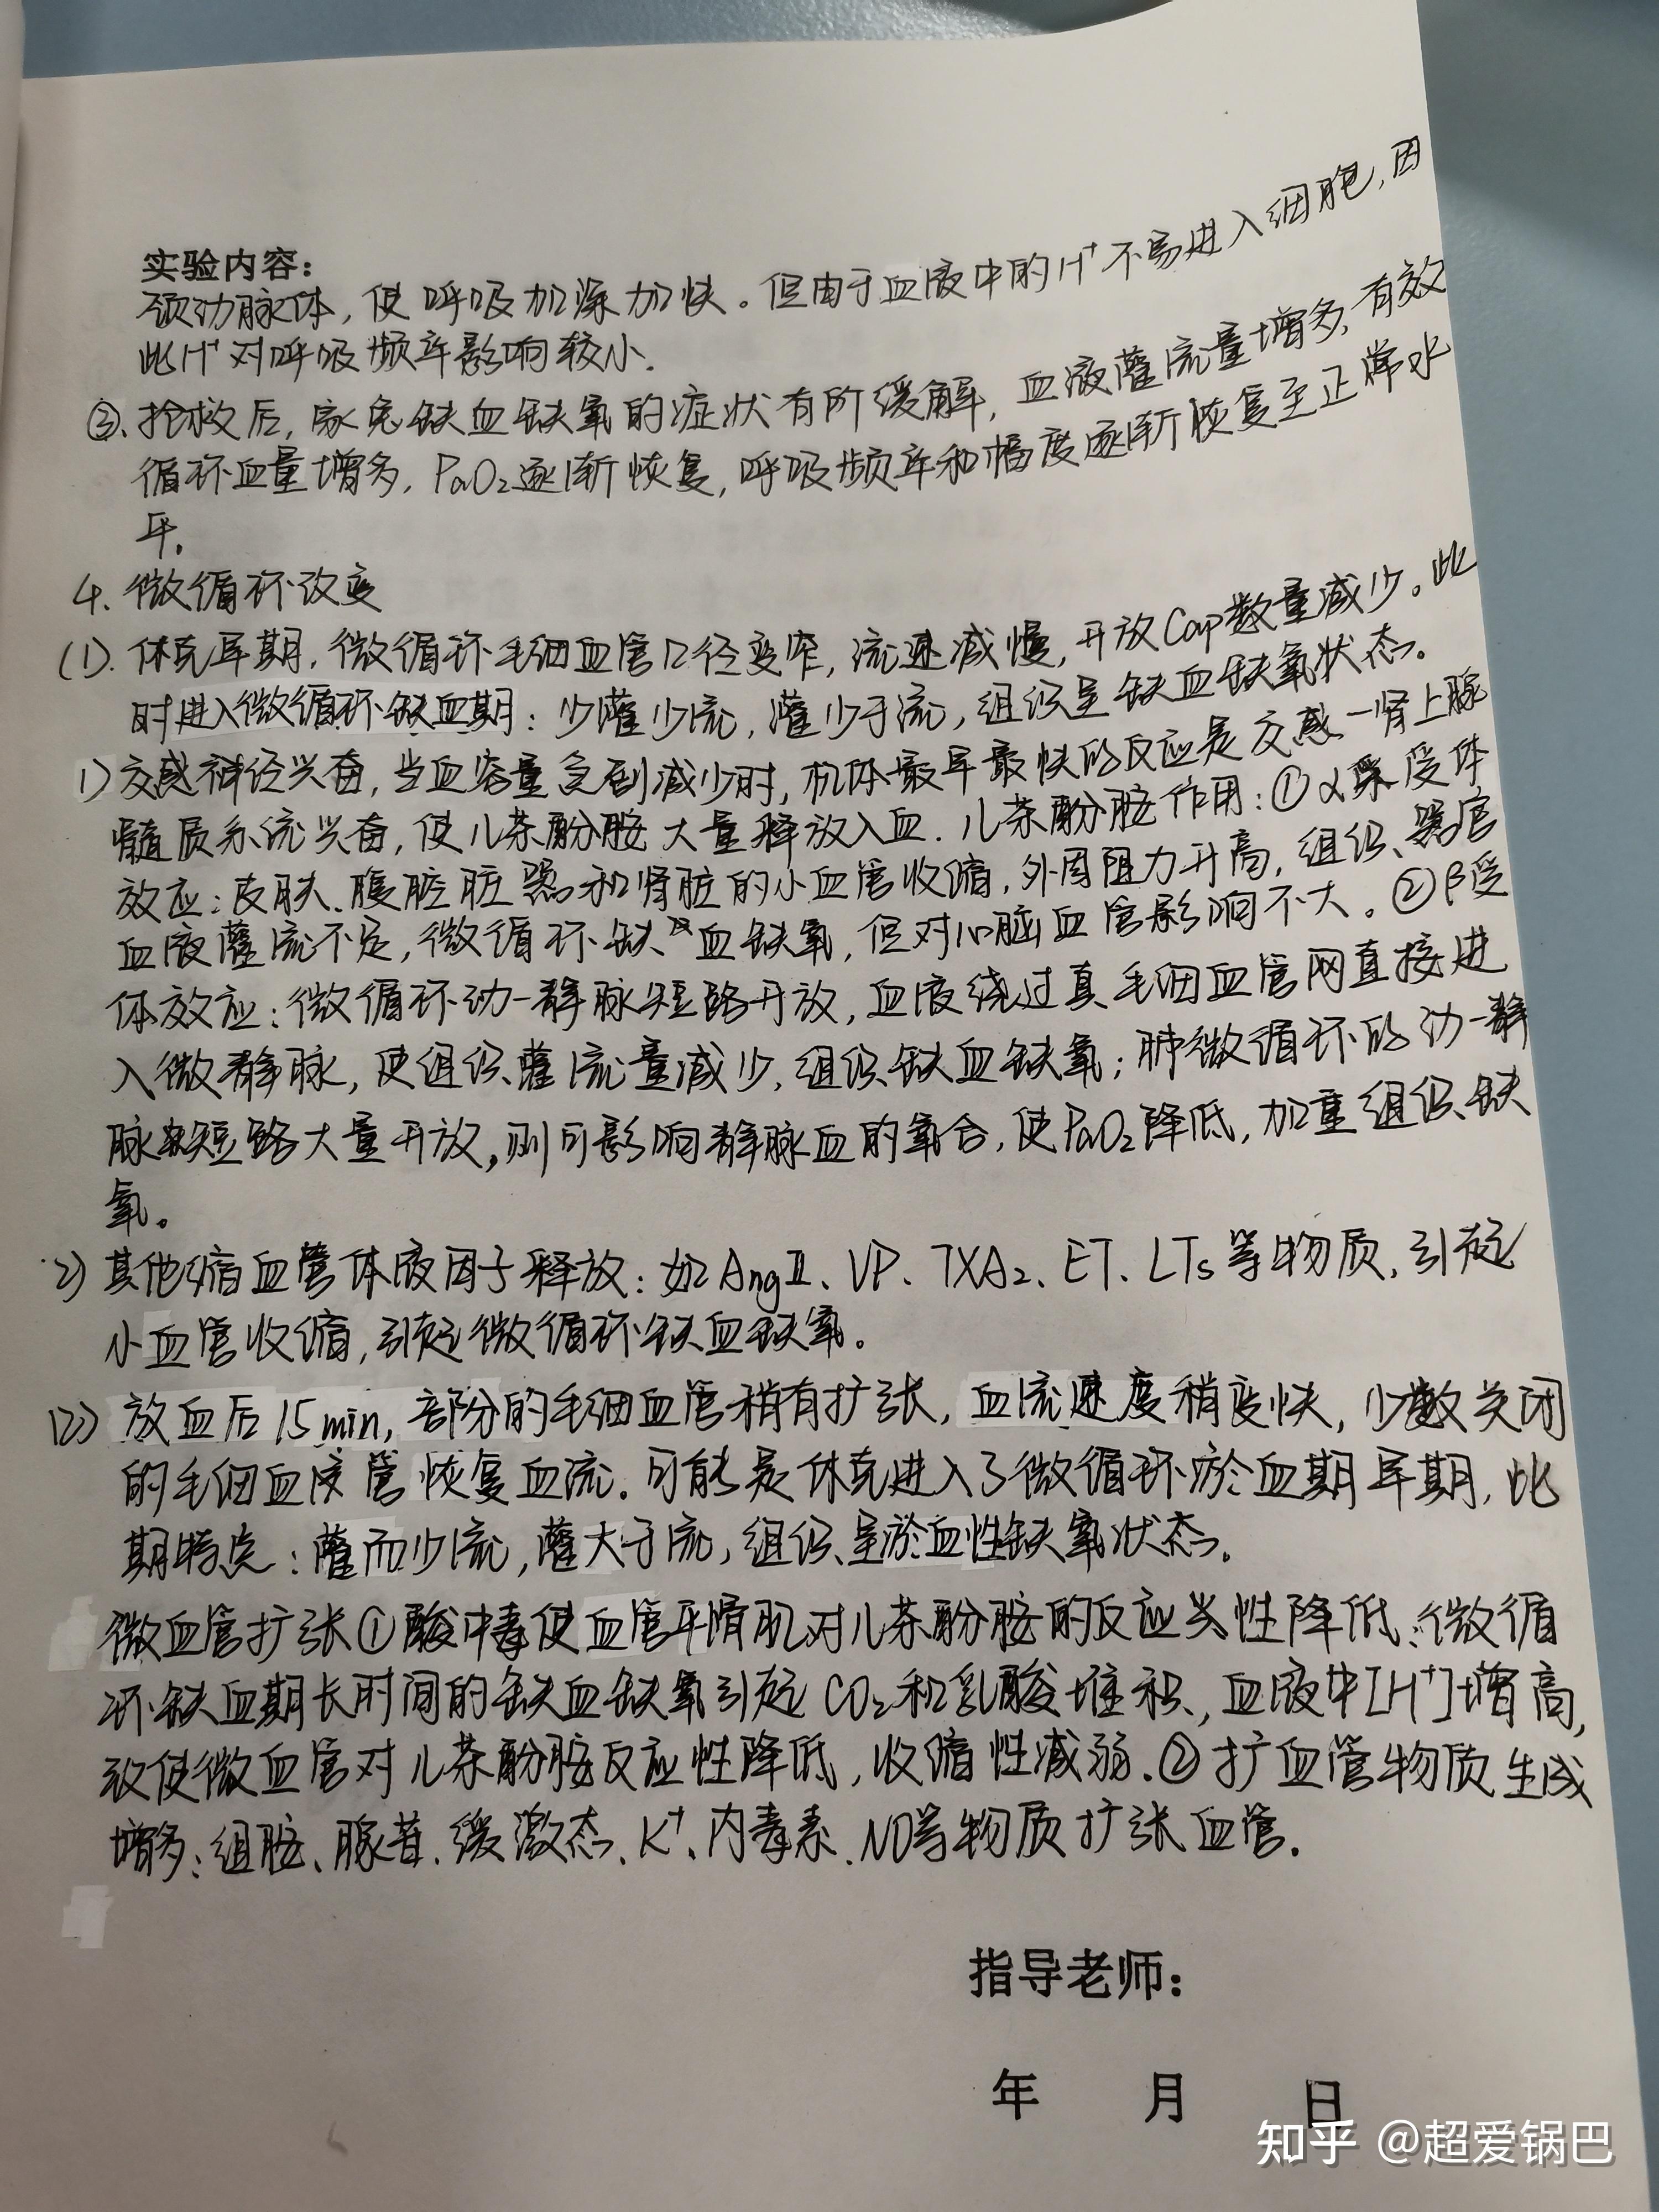 实验内容：
颈动脉体，使呼吸加深加快。但由于血液中的H⁺不易进入细胞，因
此H⁺对呼吸频率影响较小.
③、抢救后，家兔缺血缺氧的症状有所缓解，血液灌流量增多，有效
循环血量增多，PaO₂逐渐恢复，呼吸频率和幅度逐渐恢复至正常水
平.
4. 微循环改变
(1). 休克早期，微循环毛细血管口径变窄，流速减慢，开放Cap数量减少。此
时进入微循环缺血期：少灌少流，灌少于流，组织呈缺血缺氧状态。
1) 交感神经兴奋，当血容量急剧减少时，机体最早最快的反应是交感一肾上腺
髓质系统兴奋，使儿茶酚胺大量释放入血. 儿茶酚胺作用：①α受体
效应：皮肤、腹腔脏器和肾脏的小血管收缩，外周阻力升高，组织、器官
血液灌流不足，微循环缺血缺氧，但对心脑血管影响不大。②β受
体效应：微循环动-静脉短路开放，血液绕过真毛细血管网直接进
入微静脉，使组织灌流量减少，组织缺血缺氧；肺微循环的动-静
脉短路大量开放，则可影响静脉血的氧合，使PaO₂降低，加重组织缺
氧。
2) 其他缩血管体液因子释放：如AngⅡ、VP、TXA₂、ET、LTs等物质，引起
小血管收缩，引起微循环缺血缺氧。
(2) 放血后15min，部分的毛细血管稍有扩张，血流速度稍变快，少数关闭
的毛细血管恢复血流. 可能是休克进入了微循环淤血期早期，此
期特点：灌而少流，灌大于流，组织呈淤血性缺氧状态.
微血管扩张①酸中毒使血管平滑肌对儿茶酚胺的反应性降低：微循
环缺血期长时间的缺血缺氧引起CO₂和乳酸堆积，血液中[H⁺]增高，
致使微血管对儿茶酚胺反应性降低，收缩性减弱. ②扩血管物质生成
增多：组胺、腺苷、缓激态、K⁺、内毒素、NO等物质扩张血管.
指导老师：
年 月 日
知乎 @超爱锅巴